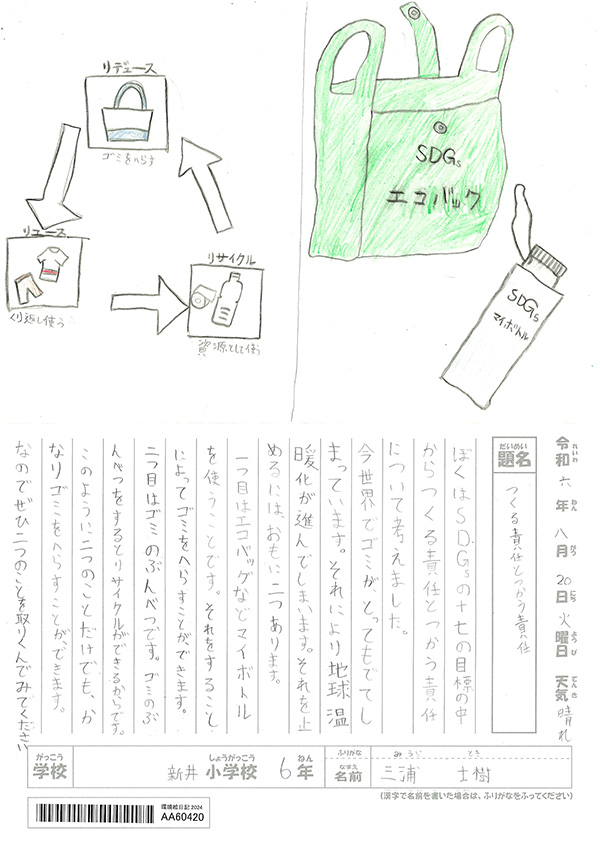 リデュース
ゴミをへらす
リユース
くり返し使う
リサイクル
資源として使う
SDGs
エコバック
SDGs
マイボトル
令和六年八月20日火曜日天気晴れ
れいわ ねん がつ にち ようび てんき
だいめい
題名
つくる責任とつかう責任
ぼくはSDGsの十七の目標の中
からつくる責任とつかう責任
について考えました。
今世界でゴミがとってもでてし
まっています。それにより地球温
暖化が進んでしまいます。それを止
めるには、おもに二つあります。
一つ目はエコバッグなどマイボトル
を使うことです。それをすること
によってゴミをへらすことができます。
二つ目はゴミのぶんべつです。ゴミのぶ
んべつをするとリサイクルができるからです。
このように二つのことだけでも、か
なりゴミをへらすことができます。
なのでぜひ二つのことを取りくんでみてください
がっこう しょうがっこう ねん
学校 新井小学校 6年
ふりがな みうら とき
なまえ
名前 三浦 士樹
(漢字で名前を書いた場合は、ふりがなをふってください)
環境絵日記2024
AA60420